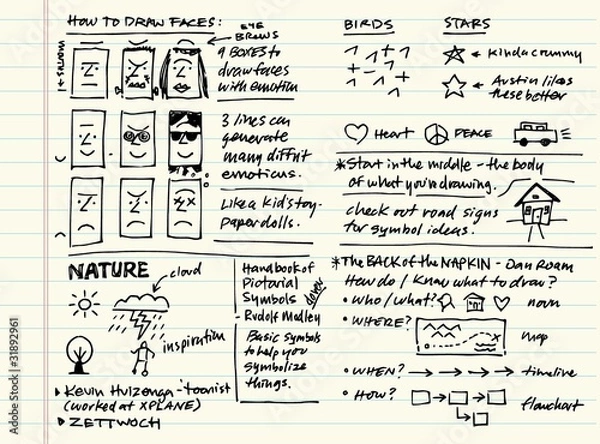 HOW TO DRAW FACES:
EYE
BROWS
MOUTHS
9 BOXES to
draw faces
with emotion
3 lines can
generate
many diffrit
emoticons.
Like a kid's toy -
Paper dolls.
BIRDS
STARS
Kinda crummy
Austin likes
these better
Heart
PEACE
*Start in the middle - the body
of what you're drawing.
check out road signs
for symbol ideas.
NATURE
cloud
inspiration
Kevin Huizenga - 'toonist
(worked at XPLANE)
ZETTWOCH
Handbook of
Pictorial
Symbols
dover
- Rudolf Modley
Basic symbols
to help you
symbolize
things.
*The BACK of the NAPKIN - Dan Roam
How do I know what to draw?
• Who/what?
noun
• WHERE?
map
• WHEN?
timeline
• How?
flowchart
Adobe Stock
Adobe Stock | #31892961